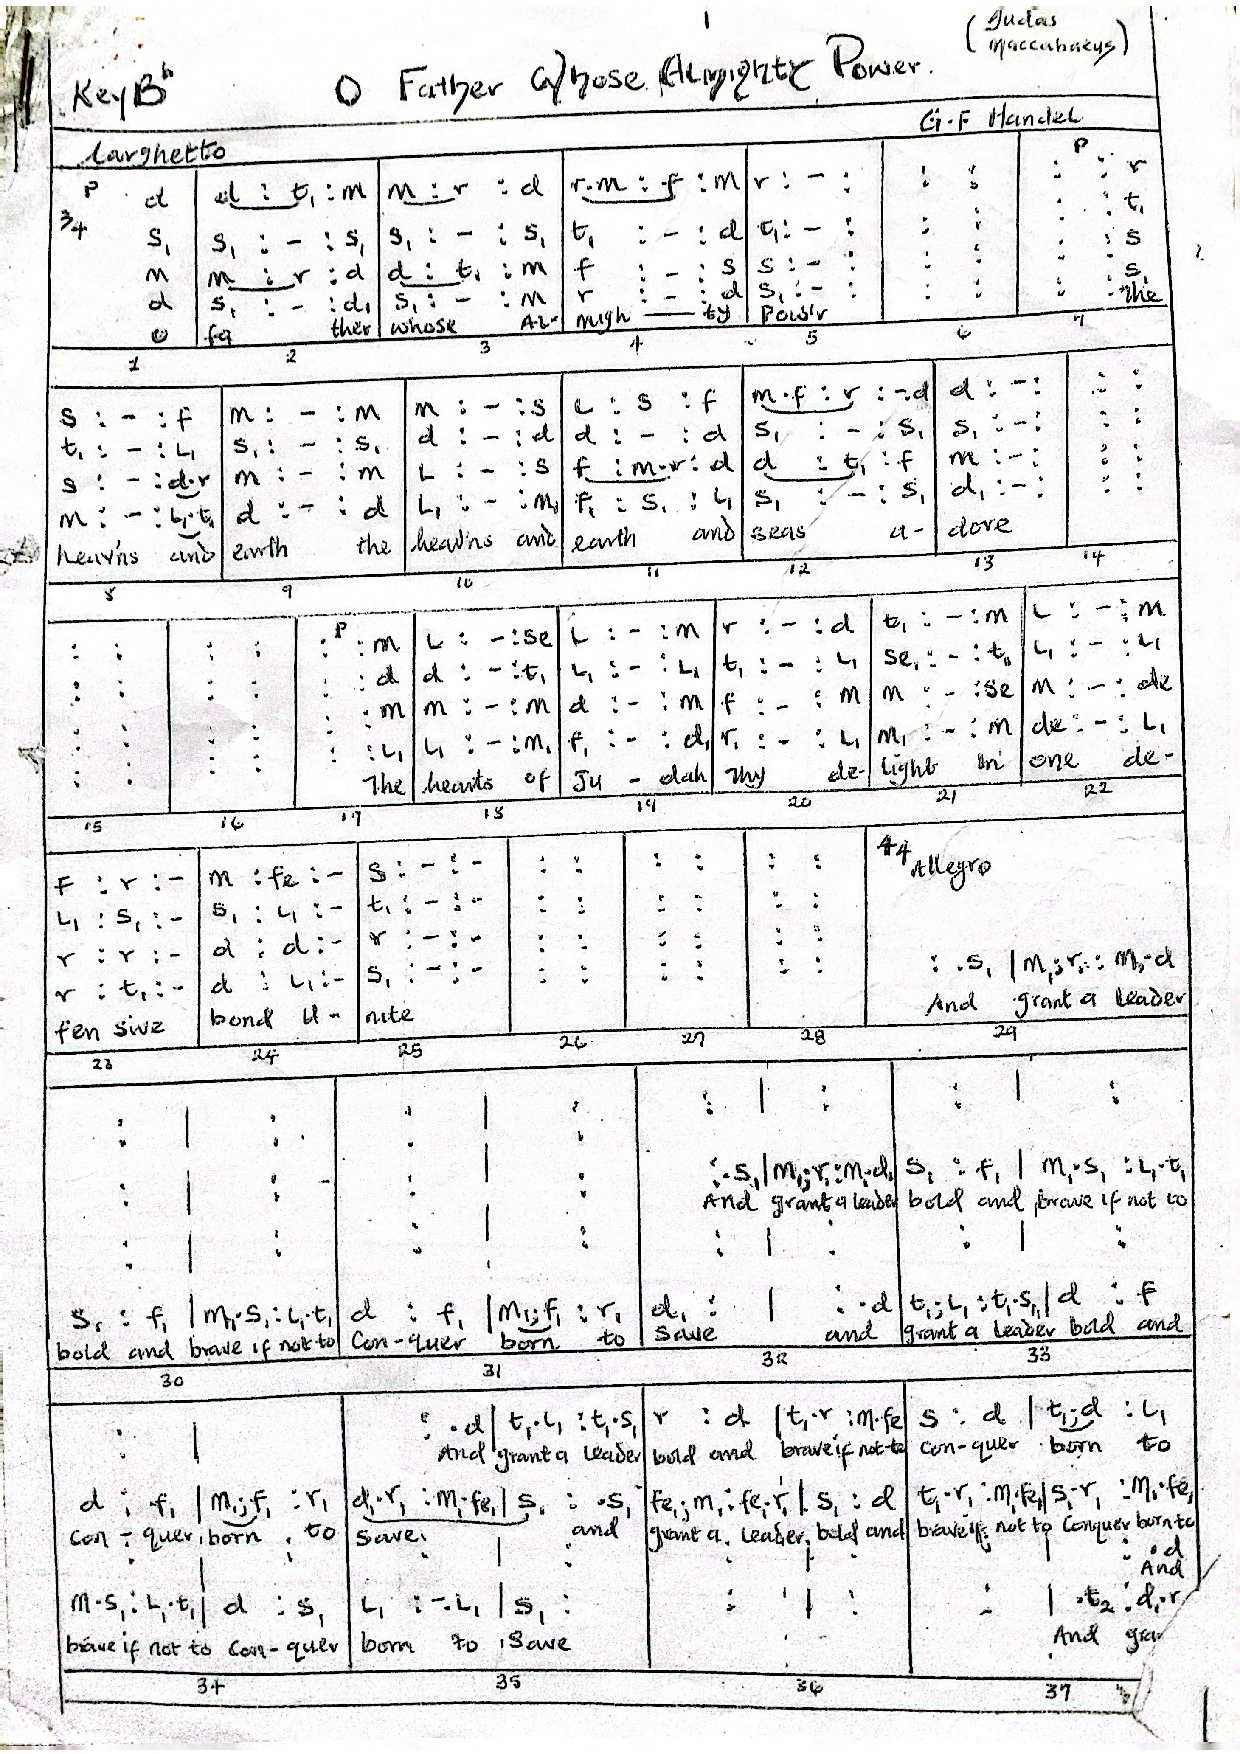 1
(Judas
Maccabaeus)
Key Bb O Father Whose Almighty Power.
G.F Handel
Larghetto
P P
3/4 d | d : t₁ : m | m : r : d | r.m : f : m | r : - : | : : | : : r
s₁ | s₁ : - : s₁ | s₁ : - : s₁ | t₁ : - : d | t₁ : - : | : : | : : t₁
m | m : r : d | d : t₁ : m | f : - : s | s : - : | : : | : : s
d | s₁ : - : d₁ | s₁ : - : m | r : - : d | s₁ : - : | : : | : : s₁
O | fa ther | whose Al- | migh — ty | Pow'r | | The
1 2 3 4 5 6 7
s : - : f | m : - : m | m : - : s | L : s : f | m.f : r : -.d | d : - : | : :
t₁ : - : L₁ | s₁ : - : s₁ | d : - : d | d : - : d | s₁ : - : s₁ | s₁ : - : | : :
s : - : d.r | m : - : m | L : - : s | f : m.r : d | d : t₁ : f | m : - : | : :
m : - : L₁.t₁ | d : - : d | L₁ : - : m₁ | f₁ : s₁ : L₁ | s₁ : - : s₁ | d₁ : - : | : :
heav'ns and | earth the | heav'ns and | earth and | seas a- | dore
8 9 10 11 12 13 14
P
: : | : : | : : m | L : - : se | L : - : m | r : - : d | t₁ : - : m | L : - : m
: : | : : | : : d | d : - : t₁ | L₁ : - : L₁ | t₁ : - : L₁ | se₁ : - : t₁ | L₁ : - : L₁
: : | : : | : : m | m : - : m | d : - : m | f : - : m | m : - : se | m : - : de
: : | : : | : : L₁ | L₁ : - : m₁ | f₁ : - : d₁ | r₁ : - : L₁ | m₁ : - : m | de : - : L₁
The | hearts of | Ju - dah | Thy de- | light in | one de-
15 16 17 18 19 20 21 22
4/4 Allegro
F : r : - | m : fe : - | s : - : - | : : | : : | : : |
L₁ : s₁ : - | s₁ : L₁ : - | t₁ : - : - | : : | : : | : : |
r : r : - | d : d : - | r : - : - | : : | : : | : : |
r : t₁ : - | d : L₁ : - | s₁ : - : - | : : | : : | : : | : .s₁ | m₁;r₁ : m₁.d
fen sive | bond u- | nite | And grant a leader
23 24 25 26 27 28 29
: | : | : | : | : | : | : | :
: | : | : | : | : .s₁ | m₁;r₁ : m₁.d₁ | s₁ : f₁ | m₁.s₁ : L₁.t₁
And grant a leader | bold and brave if not to
: | : | : | : | : | : | : | :
s₁ : f₁ | m₁.s₁ : L₁.t₁ | d : f₁ | m₁;f₁ : r₁ | d₁ : | : .d | t₁;L₁ : t₁.s₁ | d : f
bold and brave if not to | Con-quer born to | save and | grant a leader bold and
30 31 32 33
: | | : .d | t₁.L₁ : t₁.s₁ | r : d | t₁.r : m.fe | s : d | t₁;d : L₁
And grant a leader | bold and brave if not to | con-quer born to
d : f₁ | m₁;f₁ : r₁ | d₁.r₁ : m₁.fe₁ | s₁ : .s₁ | fe₁;m₁ : fe₁.r₁ | s₁ : d | t₁.r₁ : m₁.fe₁ | s₁.r₁ : m₁.fe₁
Con-quer born to | save. and | grant a leader bold and | brave if not to Conquer born to
: | : | : | : | : | : | : | : .d
And
m.s₁ : L₁.t₁ | d : s₁ | L₁ : -.L₁ | s₁ : | : | : | : | .t₂ : d₁.r₁
brave if not to Con-quer | born to save | And gra
34 35 36 37